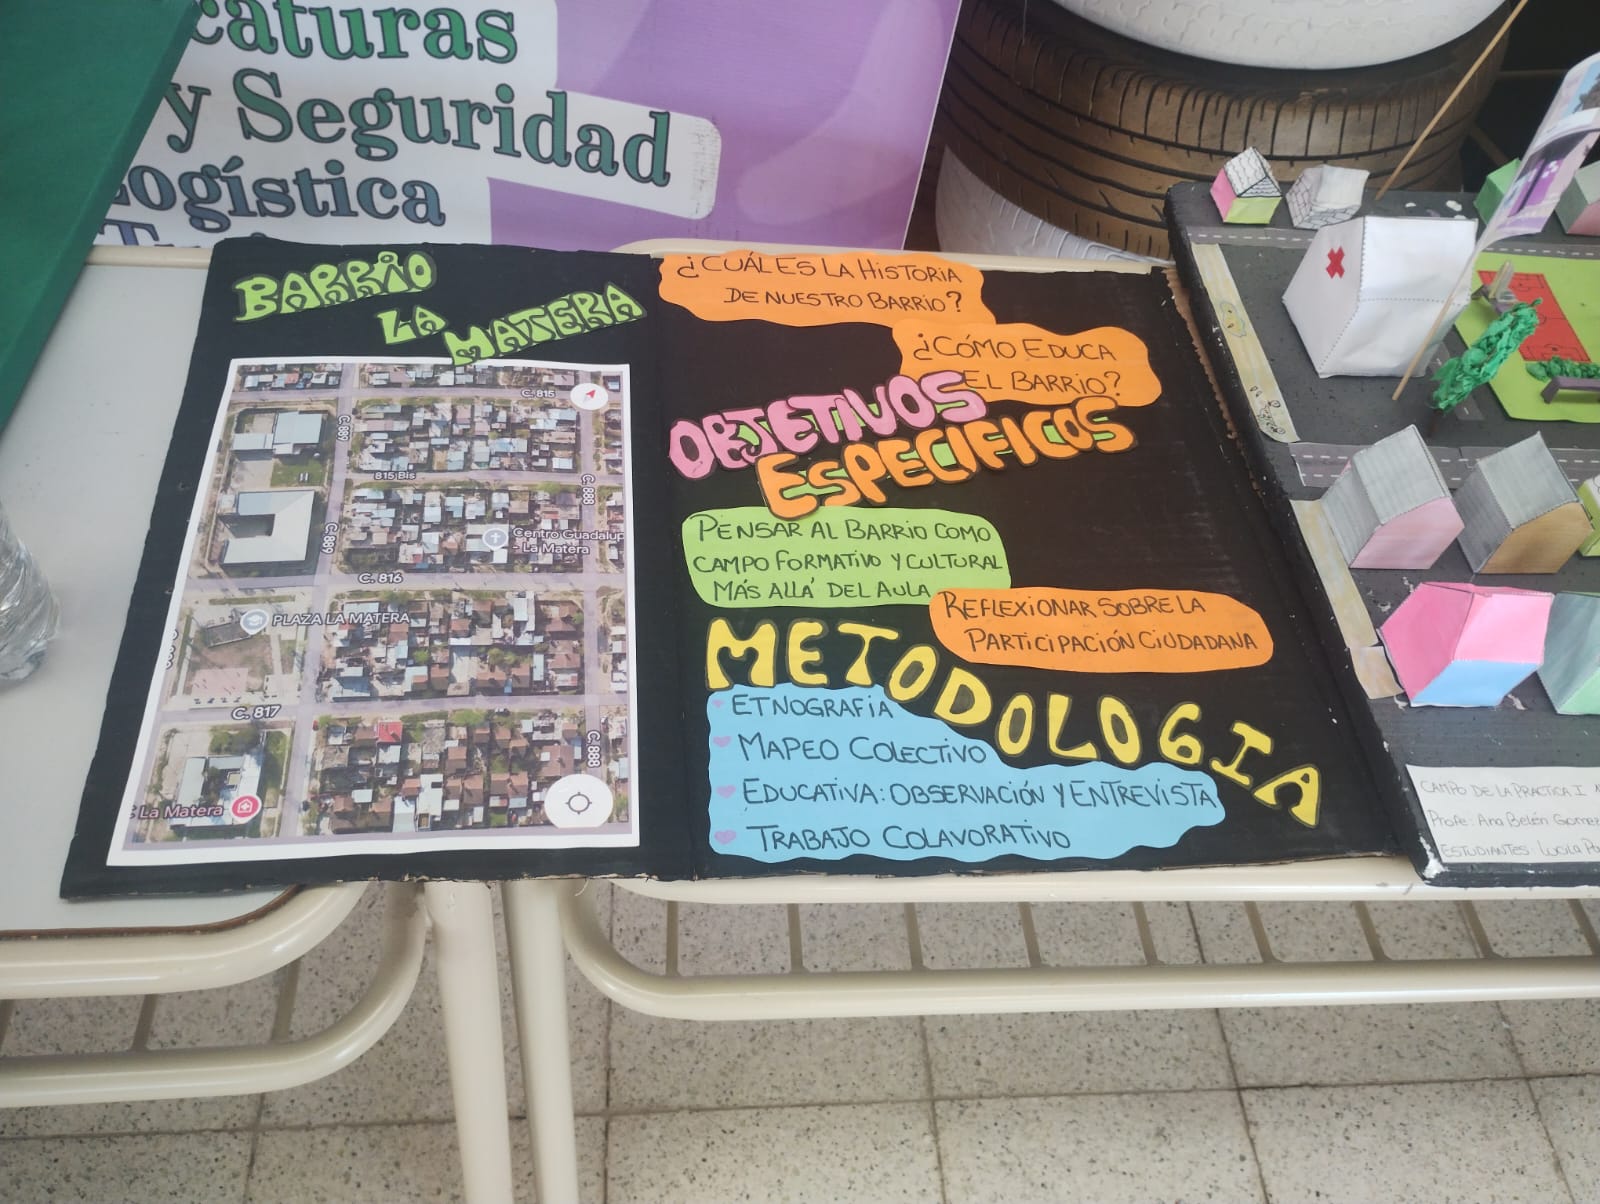 caturas
y Seguridad
Logística
BARRIO
LA
MATERA
C. 815
C. 889
815 Bis
C. 888
C. 889
Centro Guadalup
- La Matera
C. 816
PLAZA LA MATERA
C. 817
C. 888
La Matera
¿CUÁL ES LA HISTORIA
DE NUESTRO BARRIO?
¿CÓMO EDUCA
EL BARRIO?
OBJETIVOS
ESPECIFICOS
PENSAR AL BARRIO COMO
CAMPO FORMATIVO Y CULTURAL
MÁS ALLÁ DEL AULA
REFLEXIONAR SOBRE LA
PARTICIPACIÓN CIUDADANA
METODOLOGIA
ETNOGRAFIA
MAPEO COLECTIVO
EDUCATIVA: OBSERVACIÓN Y ENTREVISTA
TRABAJO COLAVORATIVO
CAMPO DE LA PRACTICA I
Profe: Ana Belén Gomez
ESTUDIANTES: Lucila